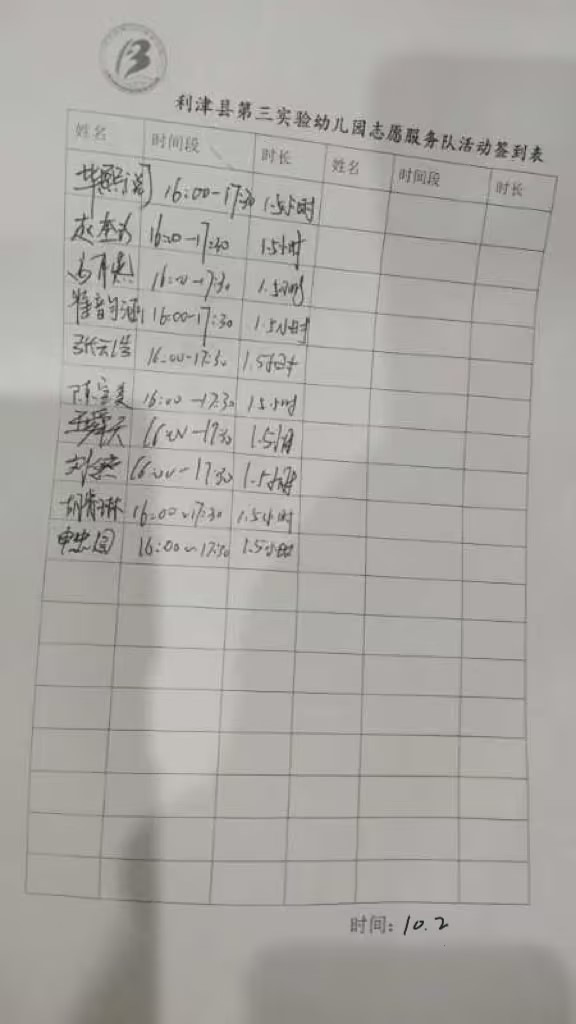 利津县第三实验幼儿园志愿服务队活动签到表
姓名 时间段 时长 姓名 时间段 时长
16:00-17:30 1.5小时
16:00-17:30 1.5小时
16:00-17:30 1.5小时
16:00-17:30 1.5小时
张云浩 16:00-17:30 1.5小时
陈宝美 16:00-17:30 1.5小时
王舜天 16:00-17:30 1.5小时
16:00-17:30 1.5小时
16:00~17:30 1.5小时
申忠园 16:00~17:30 1.5小时
时间：10.2